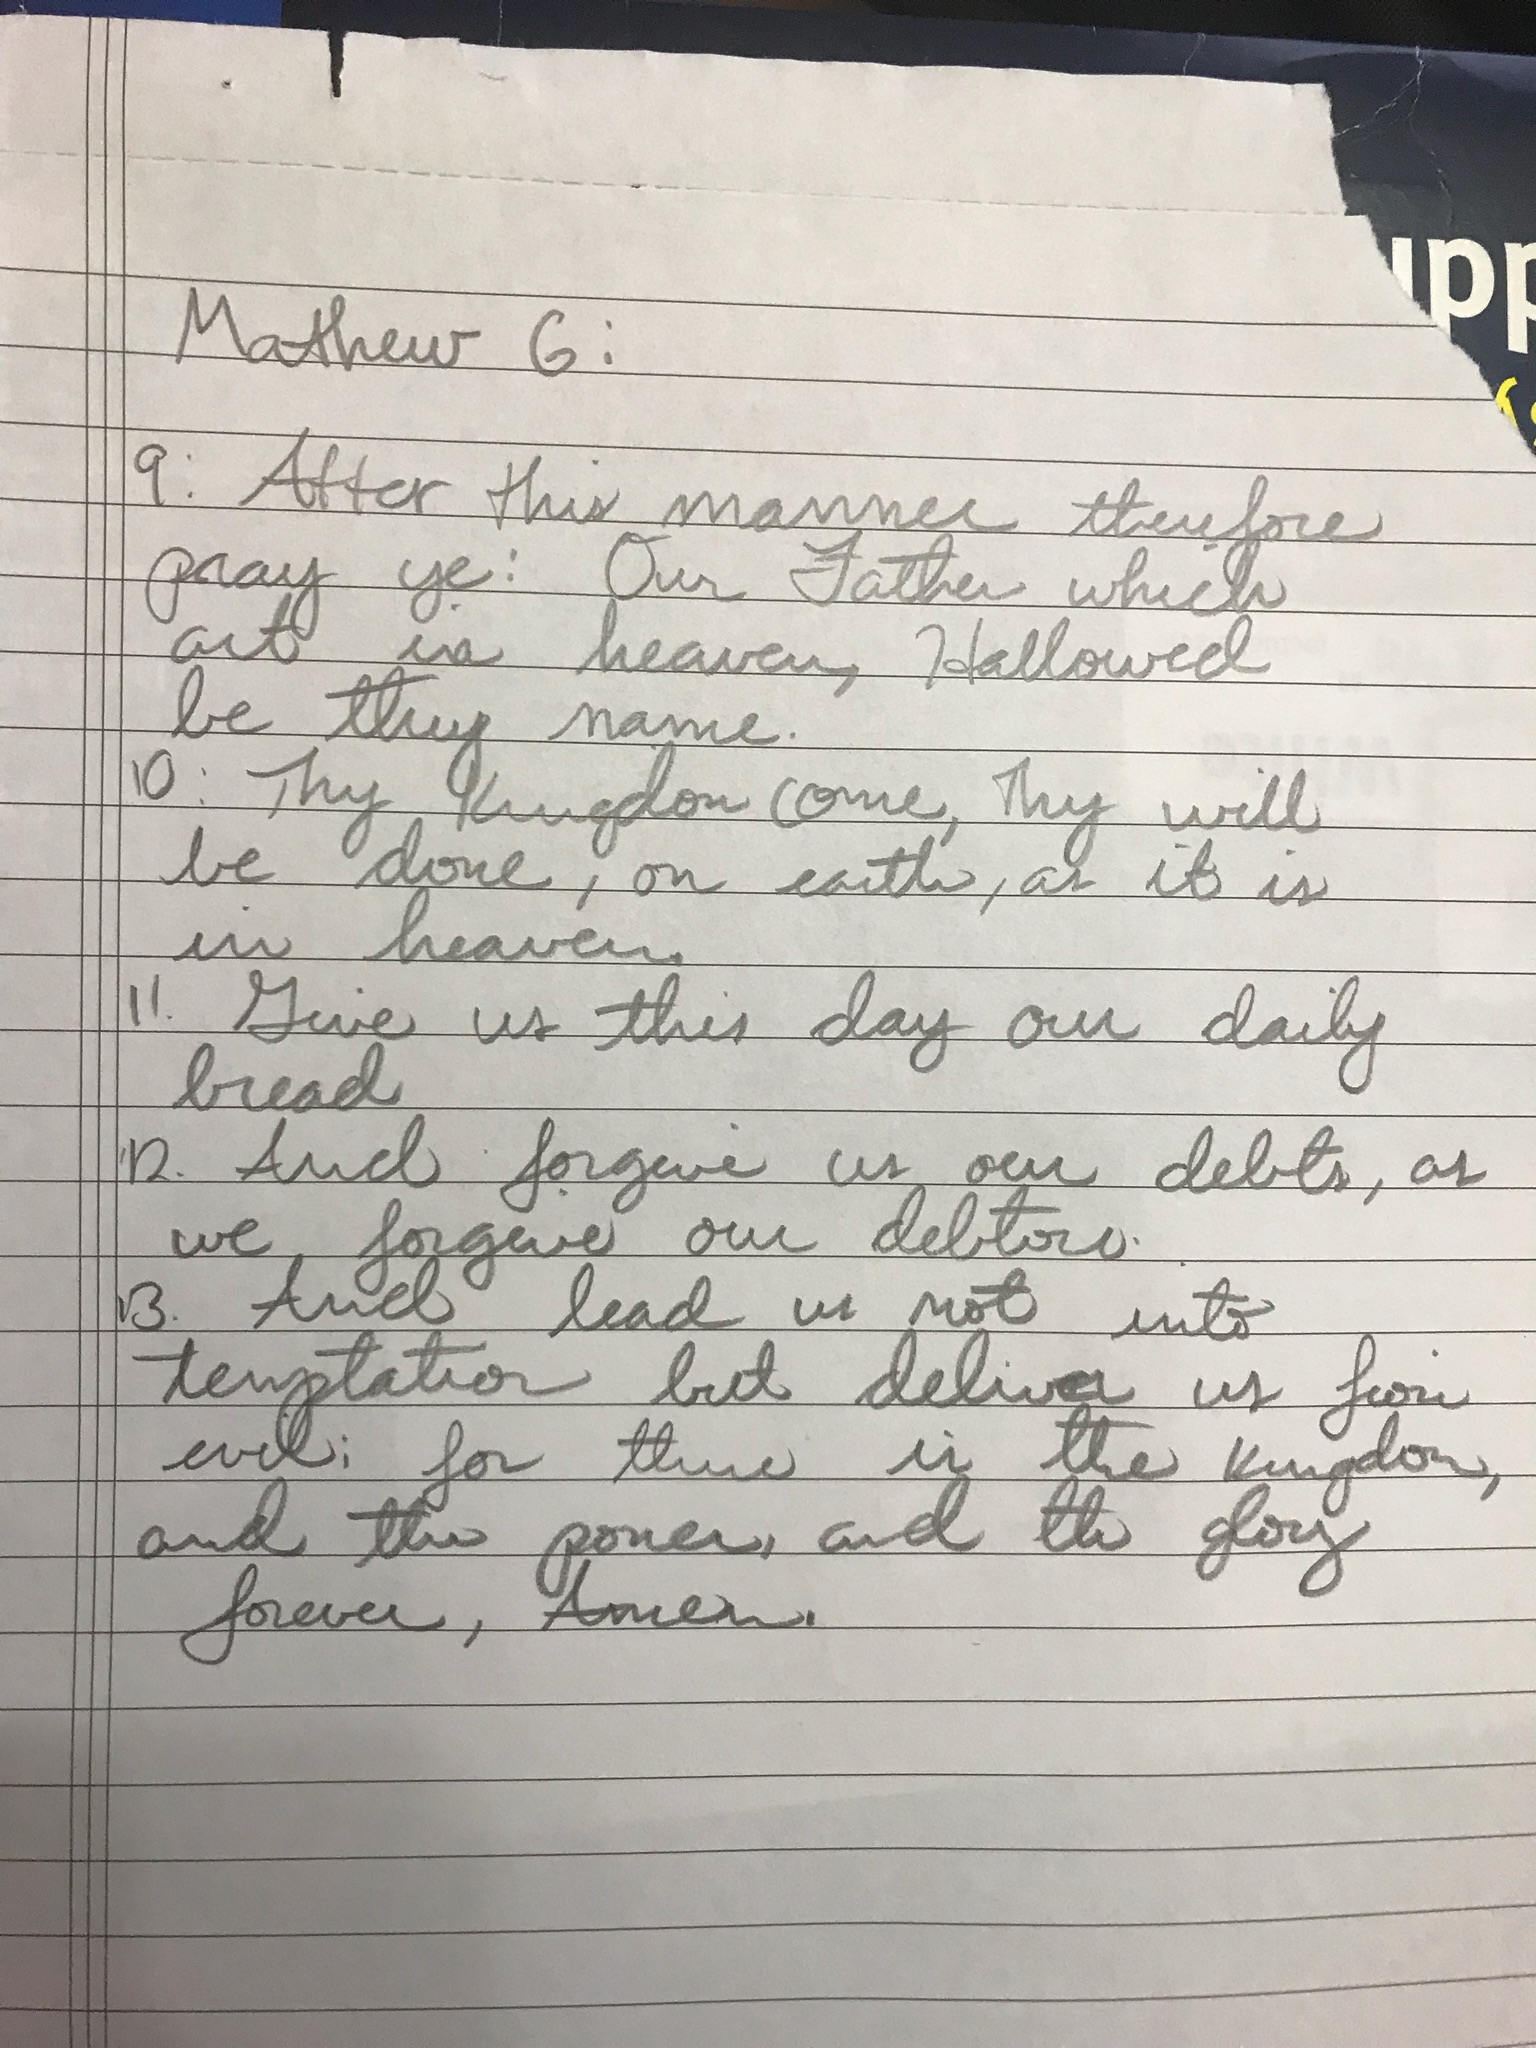 Mathew 6:
9: After this manner therefore
pray ye: Our Father which
art in heaven, Hallowed
be thy name.
10: Thy Kingdom come, Thy will
be done, on earth, as it is
in heaven.
11. Give us this day our daily
bread
12. And forgive us our debts, as
we forgive our debtors.
13. And lead us not into
temptation but deliver us from
evil: for thine is the kingdom,
and the power, and the glory
forever, Amen.
upp